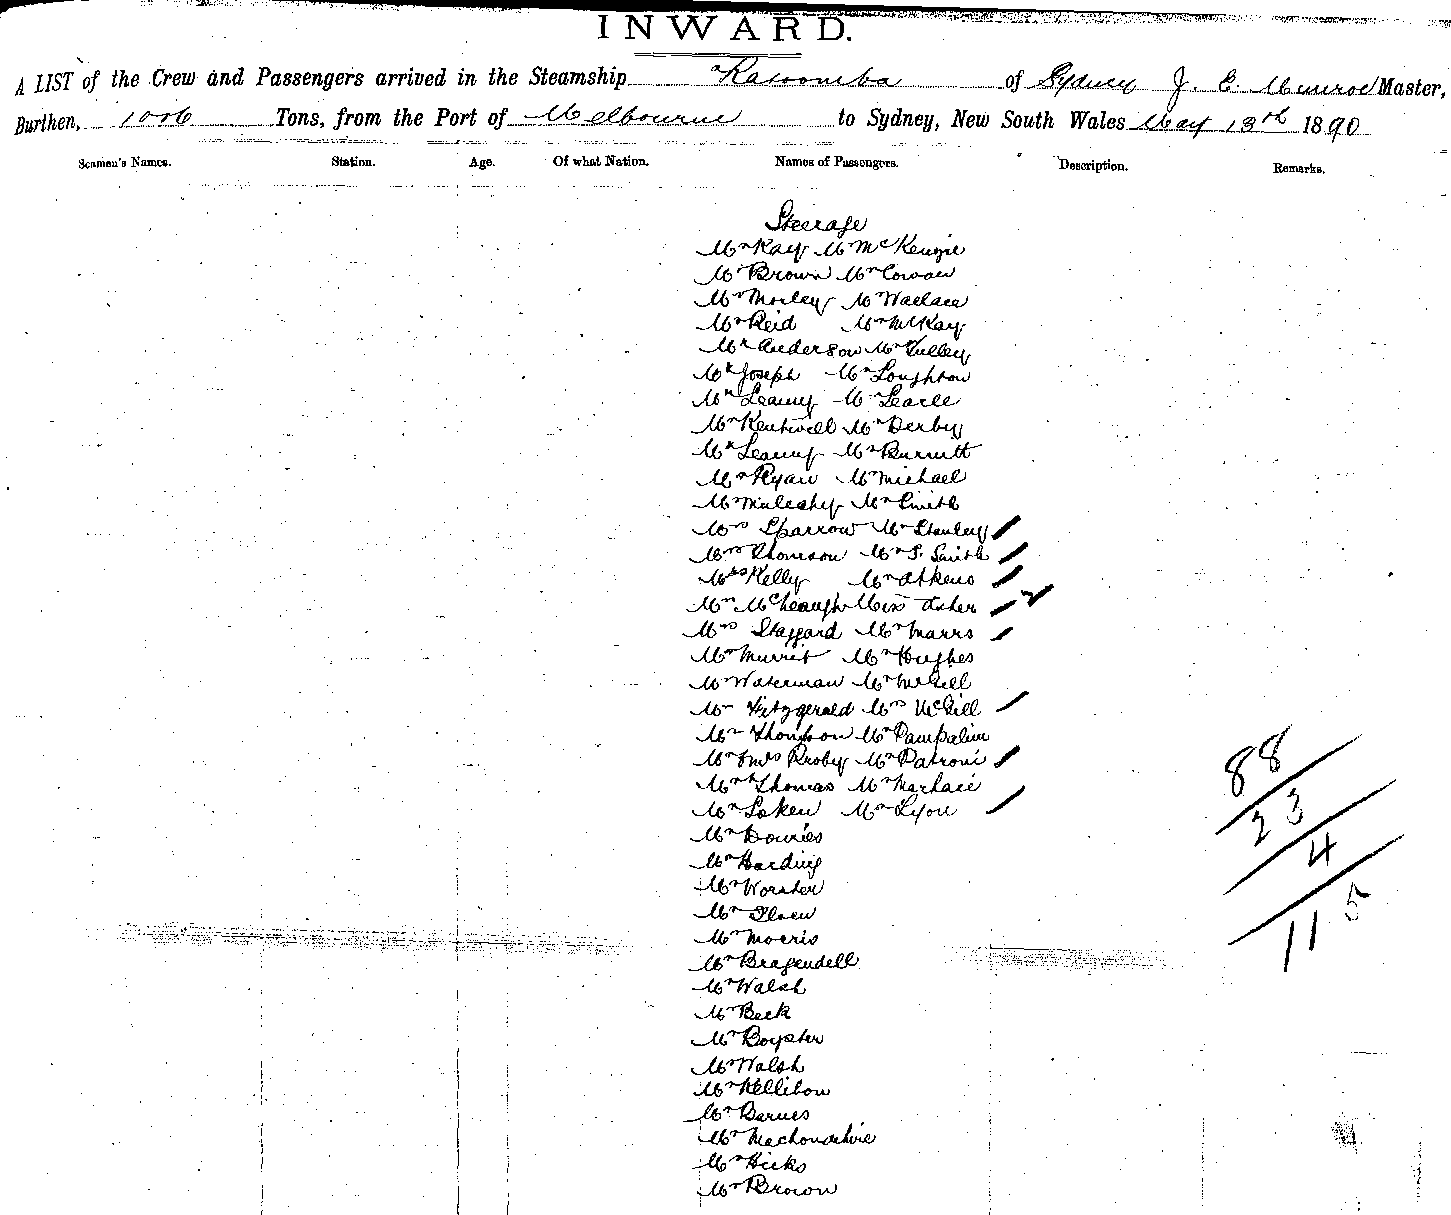 INWARD.
A LIST of the Crew and Passengers arrived in the Steamship Katoomba of Sydney J. E. Munroe Master,
Burthen, 1006 Tons, from the Port of Melbourne to Sydney, New South Wales May 13th 1890
Seamen's Names. Station. Age. Of what Nation. Names of Passengers. Description. Remarks.
Steerage
Mr Kay Mr McKenzie
Mr Brown Mr Cowan
Mr Morley Mr Wallace
Mr Reid Mr McKay
Mr Anderson Mr Tulley
Mr Joseph Mr Loughton
Mr Leamy Mr Searle
Mr Kentwell Mr Derby
Mr Leamy Mr Burnett
Mr Ryan Mr Michael
Mr Mulcahy Mr Smith
Mrs Sparrow Mr Stanley
Mrs Thomson Mr S. Smith
Mrs Kelly Mr Atkins
Mr Miss Asher
Mrs Staggard Mr Marrs
Mr Murrit Mr Hughes
Mr Waterman Mr McGill
Mr Fitzgerald Mrs McGill
Mr Thompson Mr Pampalin
Mr & Mrs Roby Mr Patroni
Mr Thomas Mr
Mr Loken Mr Lyon
Mr Dowries
Mr Harding
Mr
Mr
Mr Morris
Mr Bragendell
Mr Walsh
Mr Beck
Mr Boyster
Mr Walsh
Mr
Mr Barnes
Mr Machonachie
Mr Hicks
Mr Brown
88
23
4
115